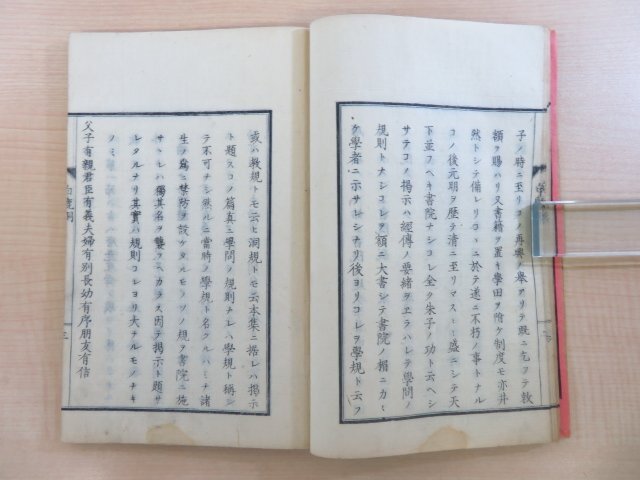 子ノ時ニ至リコノ再興ノ擧アリテ既ニ乞ヲテ敕
額ヲ賜ハリ又書籍ヲ置キ學田ヲ附ケ制度モ亦井
然トシテ備レリコヽニ於テ遂ニ不朽ノ事トナル
コノ後元明ヲ歴テ清ニ至リマスヽヽ盛ニシテ天
下並フヘキ書院ナシコレ全ク朱子ノ功ト云ヘシ
サテコノ掲示ハ經傳ノ要緒ヲエラハレテ學問ノ
規則トナシコレヲ額ニ大書シテ書院ノ楣ニカヽ
ケ學者ニ示サレシナリ後ヨリコレヲ學規ト云フ
或ハ教規トモ云ヒ洞規トモ云本集ニ据レハ掲示
ト題スコノ篇真ニ學問ノ規則ナレハ學規ト稱シ
テ不可ナシ然ルニ當時ノ學規ト名クルハミナ諸
生ノ爲ニ禁防ヲ設ケタルモノソノ規ヲ書院ニ施
サヽレハ獨其名ヲ襲フヘカラス因テ掲示ト題サ
レタルナリ其實ハ規則コレヨリ大ナルモノナキ
ノミ
父子有親君臣有義夫婦有別長幼有序朋友有信
白鹿洞